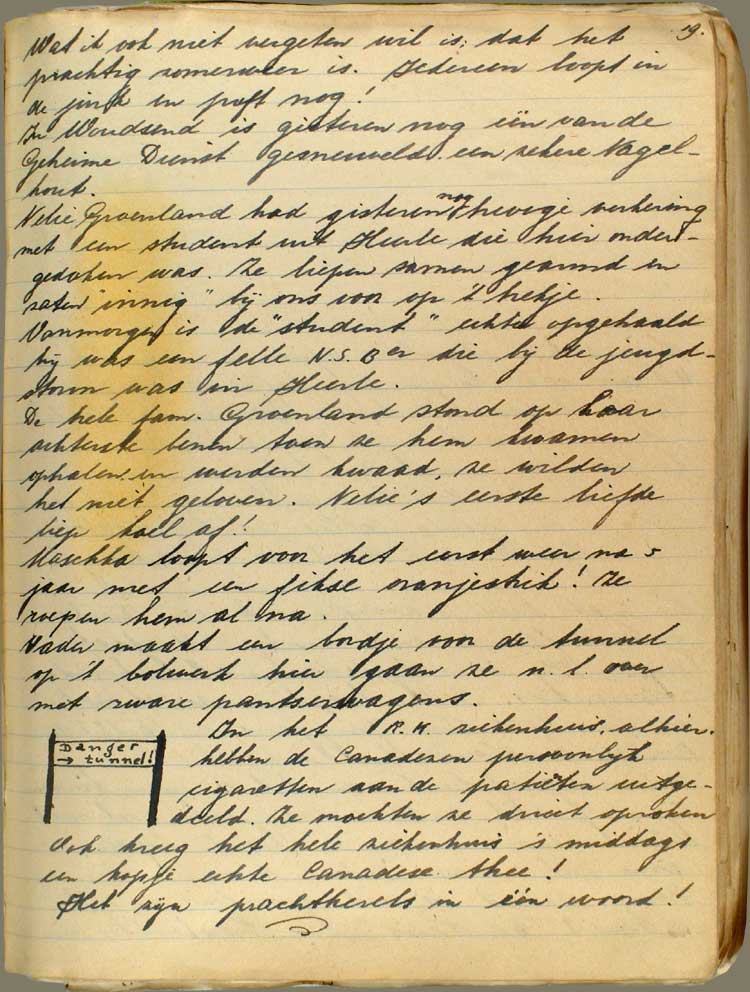 19.
Wat ik ook niet vergeten wil is: dat het
prachtig zomerweer is. Iedereen loopt in
de jurk en puft nog!
In Woudsend is gisteren nog één van de
Geheime Dienst gesneuveld. een zekere Nagel-
hout.
Nelie Groenland had gisteren nog hevige verkering
met een student uit Heerle die hier onder-
gedoken was. Ze liepen samen gearmd en
zaten "innig" bij ons voor op 't hekje.
Vanmorgen is de "student" echter opgehaald
hij was een felle N.S.Ber die bij de jeugd-
storm was in Heerle.
De hele fam. Groenland stond op haar
achterste benen toen ze hem kwamen
ophalen en werden kwaad, ze wilden
het niet geloven. Nelie's eerste liefde
liep koel af!
Maschka loopt voor het eerst weer na 5
jaar met een fikse oranjestrik! Ze
roepen hem al na.
Vader maakt een bordje voor de tunnel
op 't bolwerk hier gaan ze n.l. over
met zware pantserwagens.
Danger
→ tunnel!
In het R.K. ziekenhuis, alhier.
hebben de Canadezen persoonlijk
cigaretten aan de patiëten uitge-
deeld. Ze mochten ze direct oproken
Ook kreeg het hele ziekenhuis 's middags
een kopje echte Canadese thee!
Het zijn prachtkerels in één woord!